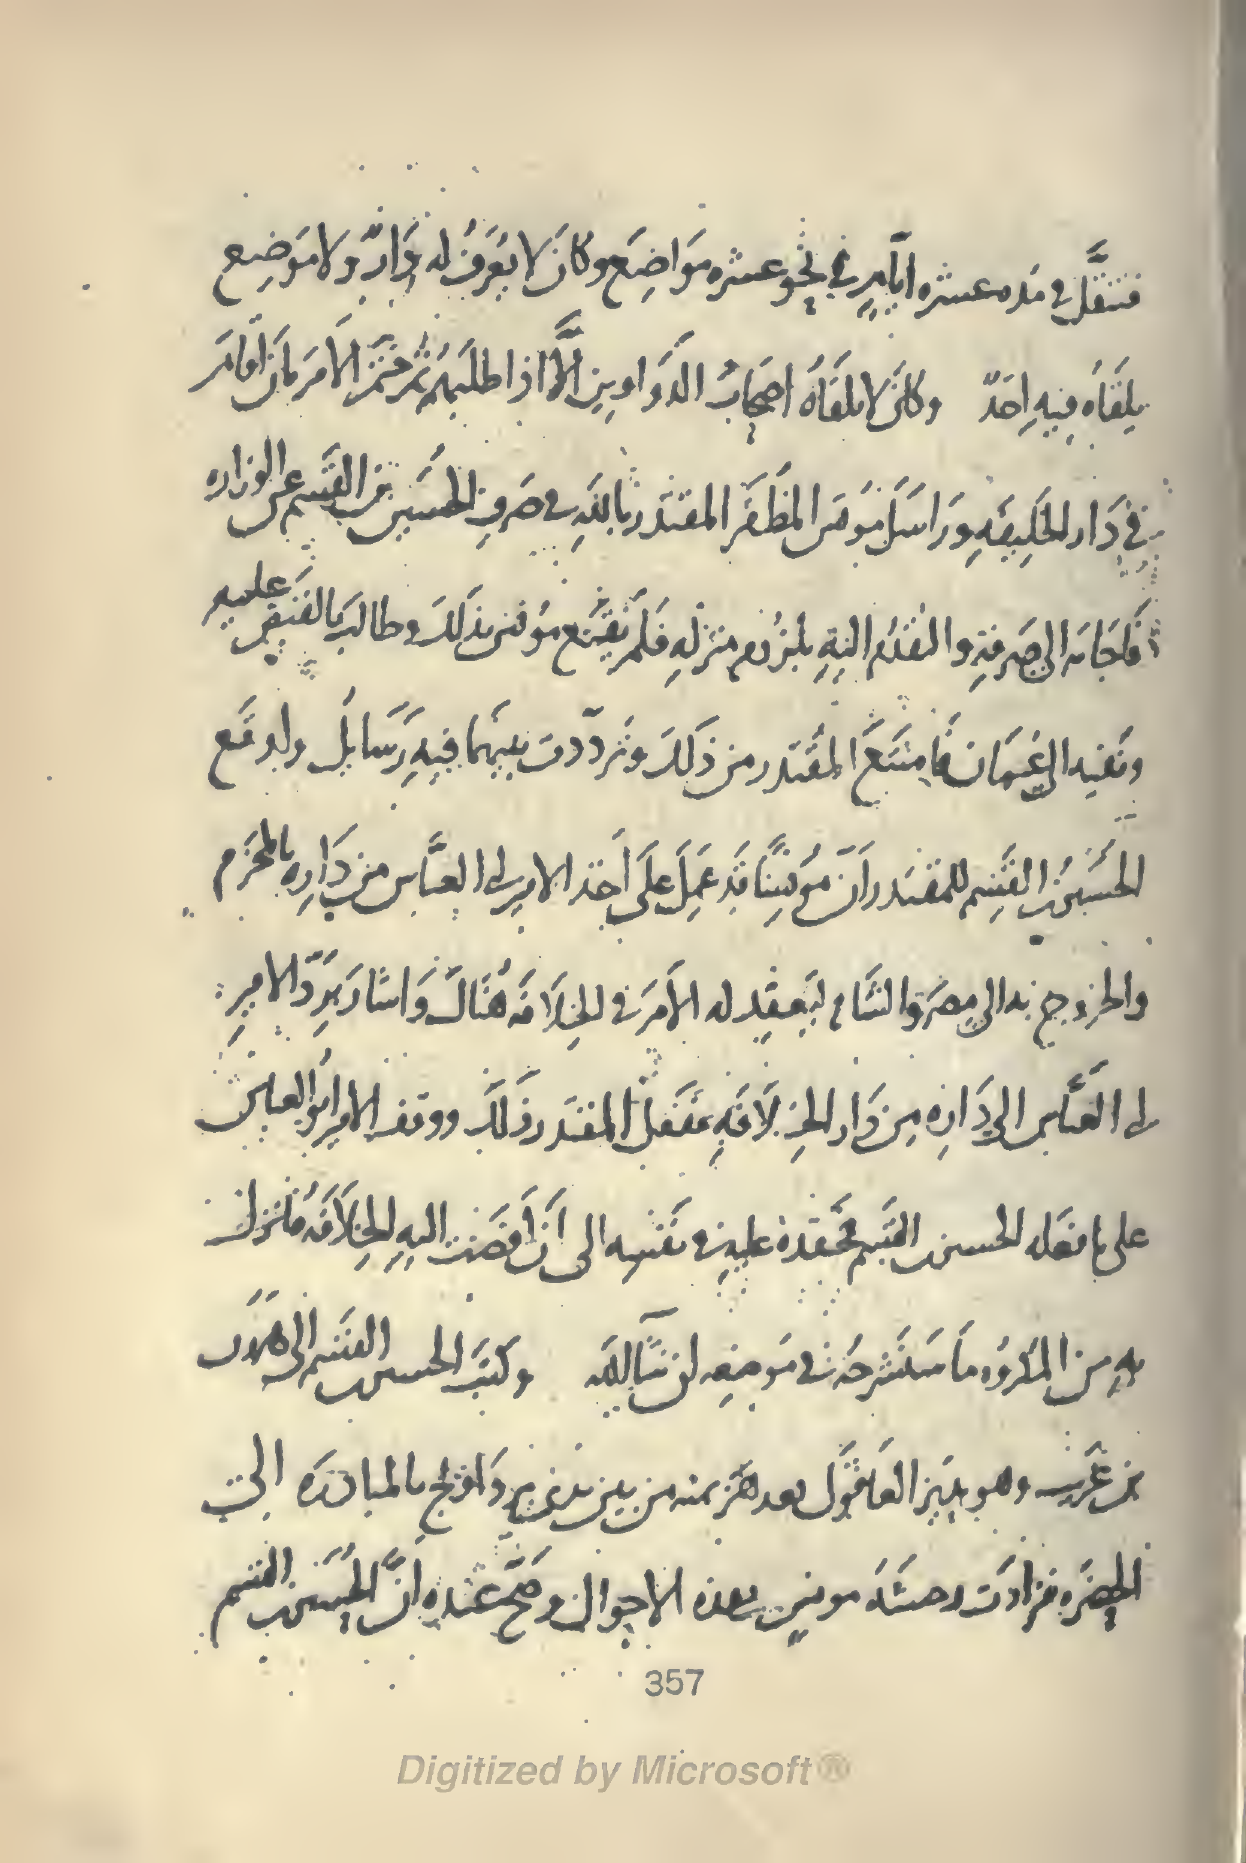 فتنقّل في مده عشره ايّامٍ في نحو عشره مَوَاضِعَ وكانَ لا يُعرَفُ له دَارٌ ولا مَوضِع
يلقَاهُ فيهِ احَدٌ وكانَ لا يلقَاهُ اصحَابُ الدَوَاوينِ الَّا اذا طلبَهم ثُمّ ختمَ الأمرَ بان اقامَ
في دَار الخَلِيفَهِ ورَاسَلَ مُونسٌ المظفَّر المقتدر باللهِ في صَرفِ الحُسَين بن القسِم عن الوزاره
فاجَابَه الى صَرفهِ والتقدُمِ اليهِ بلزُومِ منزلهِ فلم يَقنَع مونس بذلكَ وطالبَ بالقبضِ عليهِ
ونَفيه الى عُمَان فامتنَعَ المُقتدر من ذَلكَ وتردّدت بينهما فيهِ رَسَايلُ واوقَع
الحُسَينُ بن القَسِم للمقتدر أنّ مُونِسًا قد عَمِلَ على أخذ الامير ابي العبَّاس من دَارِه بالمخرّم
والخروج به الى مِصرَ والشَام ليَعقِد له الأمرَ في الخِلَافه هُنَاكَ وَاشَارَ برَدّ الامير
ابي العبَّاس الى دَارِه مِن دَار الخِلَافَهِ ففعَلَ المقتدر ذلكَ ووقف الامير ابو العباس
على ما فعله الحسين بن القسِم فحقدهُ عليهِ في نفسِه الى أن أفضَت اليهِ الخِلَافَهُ فانزل
بهِ مِن المكرُوه مَا سَنَشرحُه في مَوضِعِه ان شآ الله وكتبَ الحسين بن القسم الى هَرُون
بن غَريب وهو بدَير العاقُول بعد هَزِيمته من بين يدي مرداويج بالمبادَرَه الى
الحضرَه فزادَت وحشَهُ مونس بهذه الاحوال وصَحَّ عندَه انَّ الحُسَين بن القسم
357
Digitized by Microsoft®